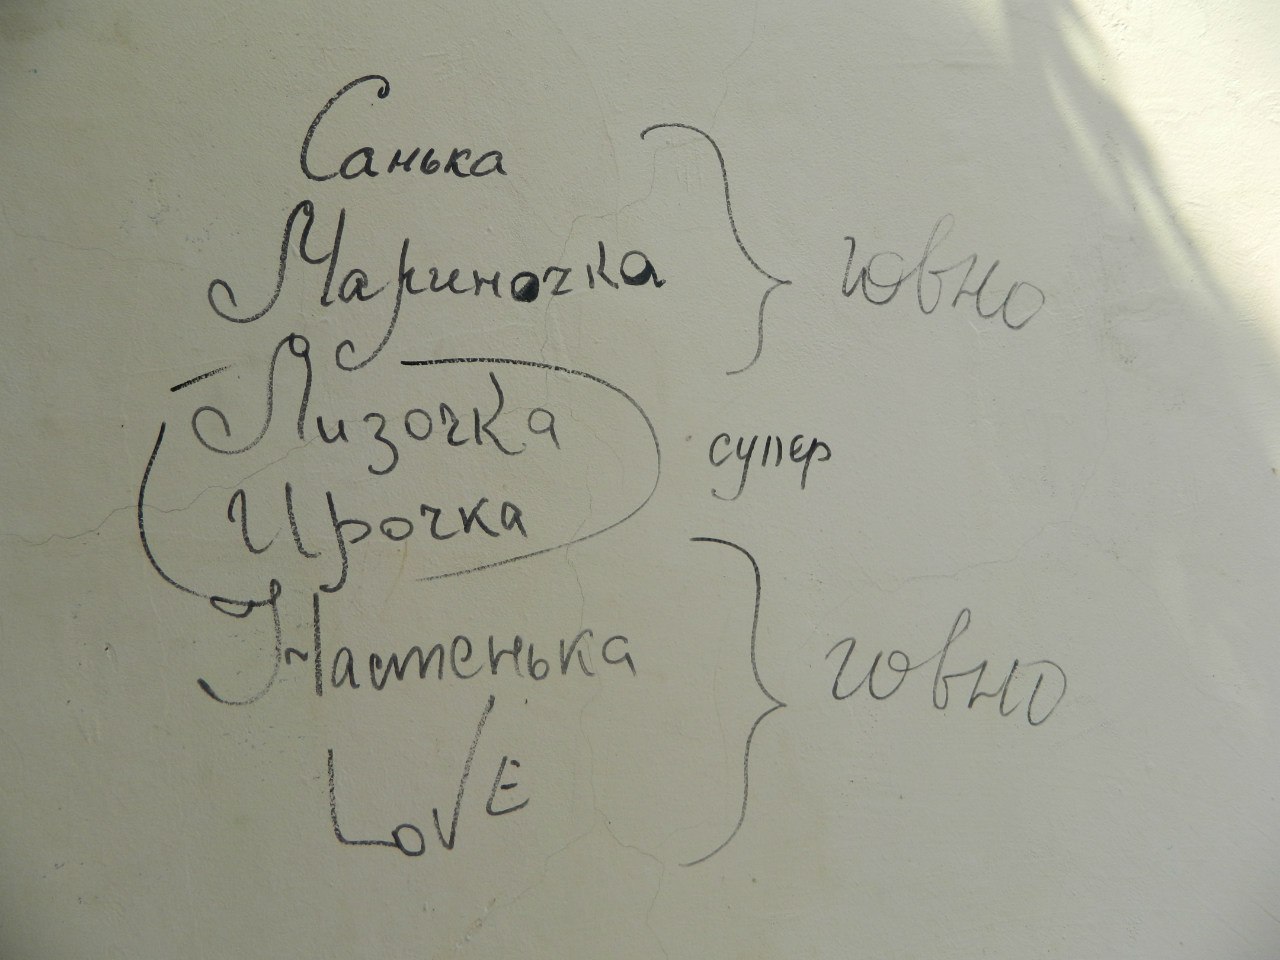 Санька
Мариночка
говно
Лизочка
супер
Ирочка
Настенька
говно
LovE